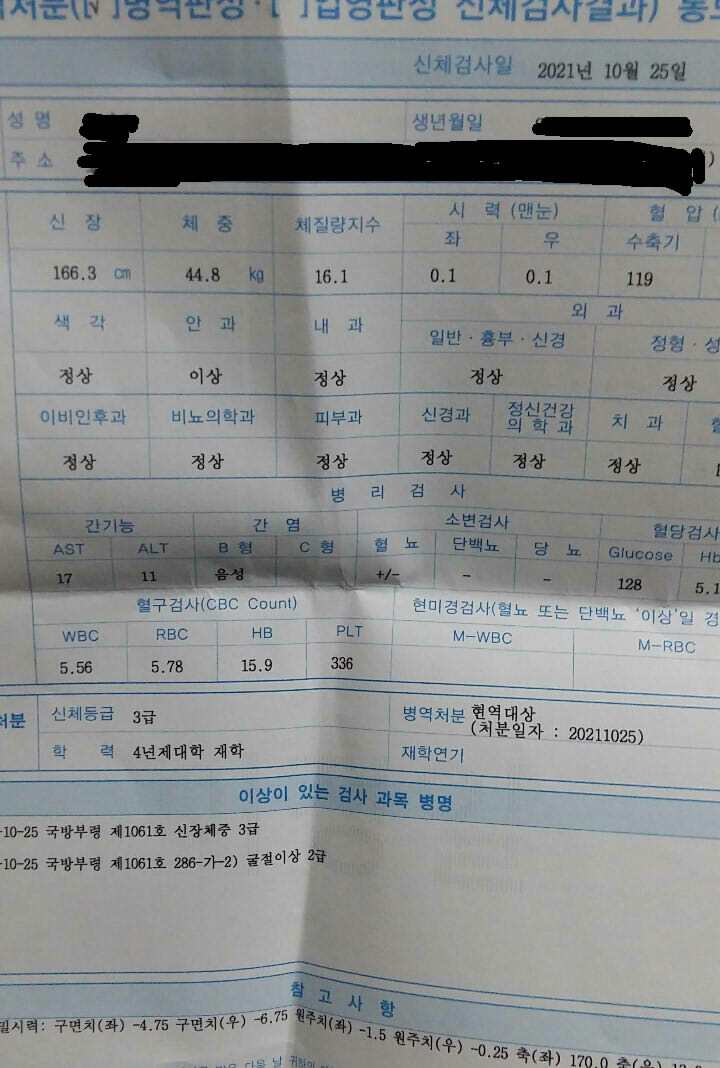 처분([ ]병역판정·[ ]입영판정 신체검사결과) 통
신체검사일 2021년 10월 25일
성 명 생년월일
주 소 )
신 장 체 중 체질량지수 시 력 (맨눈) 혈 압 (
좌 우 수축기
166.3 cm 44.8 kg 16.1 0.1 0.1 119
색 각 안 과 내 과 외 과
일반·흉부·신경 정형·성
정상 이상 정상 정상 정상
이비인후과 비뇨의학과 피부과 신경과 정신건강의학과 치 과
정상 정상 정상 정상 정상 정상
병 리 검 사
간기능 간 염 소변검사 혈당검사
AST ALT B 형 C 형 혈 뇨 단백뇨 당 뇨 Glucose Hb
17 11 음성 +/- - - 128 5.1
혈구검사(CBC Count) 현미경검사(혈뇨 또는 단백뇨 '이상'일 경
WBC RBC HB PLT M-WBC M-RBC
5.56 5.78 15.9 336
처분 신체등급 3급 병역처분 현역대상
(처분일자 : 20211025)
학 력 4년제대학 재학 재학연기
이상이 있는 검사 과목 병명
-10-25 국방부령 제1061호 신장체중 3급
-10-25 국방부령 제1061호 286-가-2) 굴절이상 2급
참 고 사 항
밀시력: 구면치(좌) -4.75 구면치(우) -6.75 원주치(좌) -1.5 원주치(우) -0.25 축(좌) 170.0 축(우)